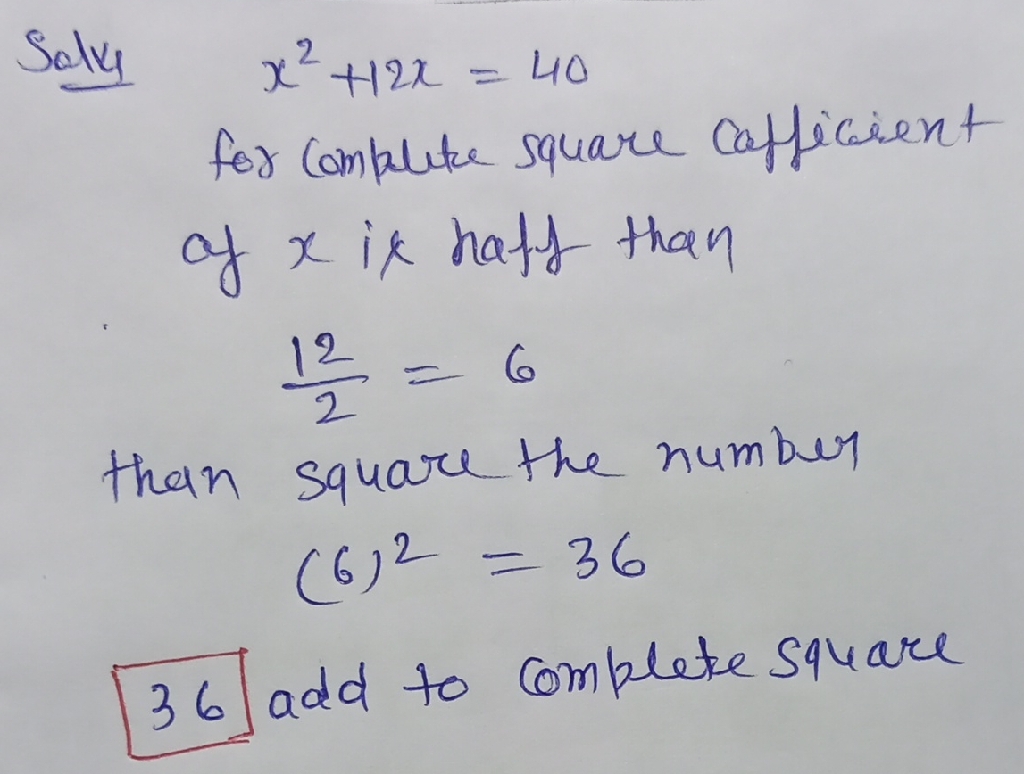 Solve x² +12x = 40
for Complete square Cofficient
of x is half than
12/2 = 6
than square the number
(6)² = 36
36 add to Complete square